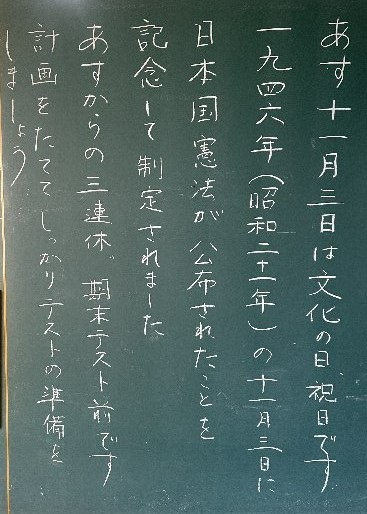 あす十一月三日は文化の日、祝日です
一九四六年(昭和二十一年)の十一月三日に
日本国憲法が公布されたことを
記念して制定されました
あすからの三連休。期末テスト前です
計画をたててしっかりテストの準備を
しましょう